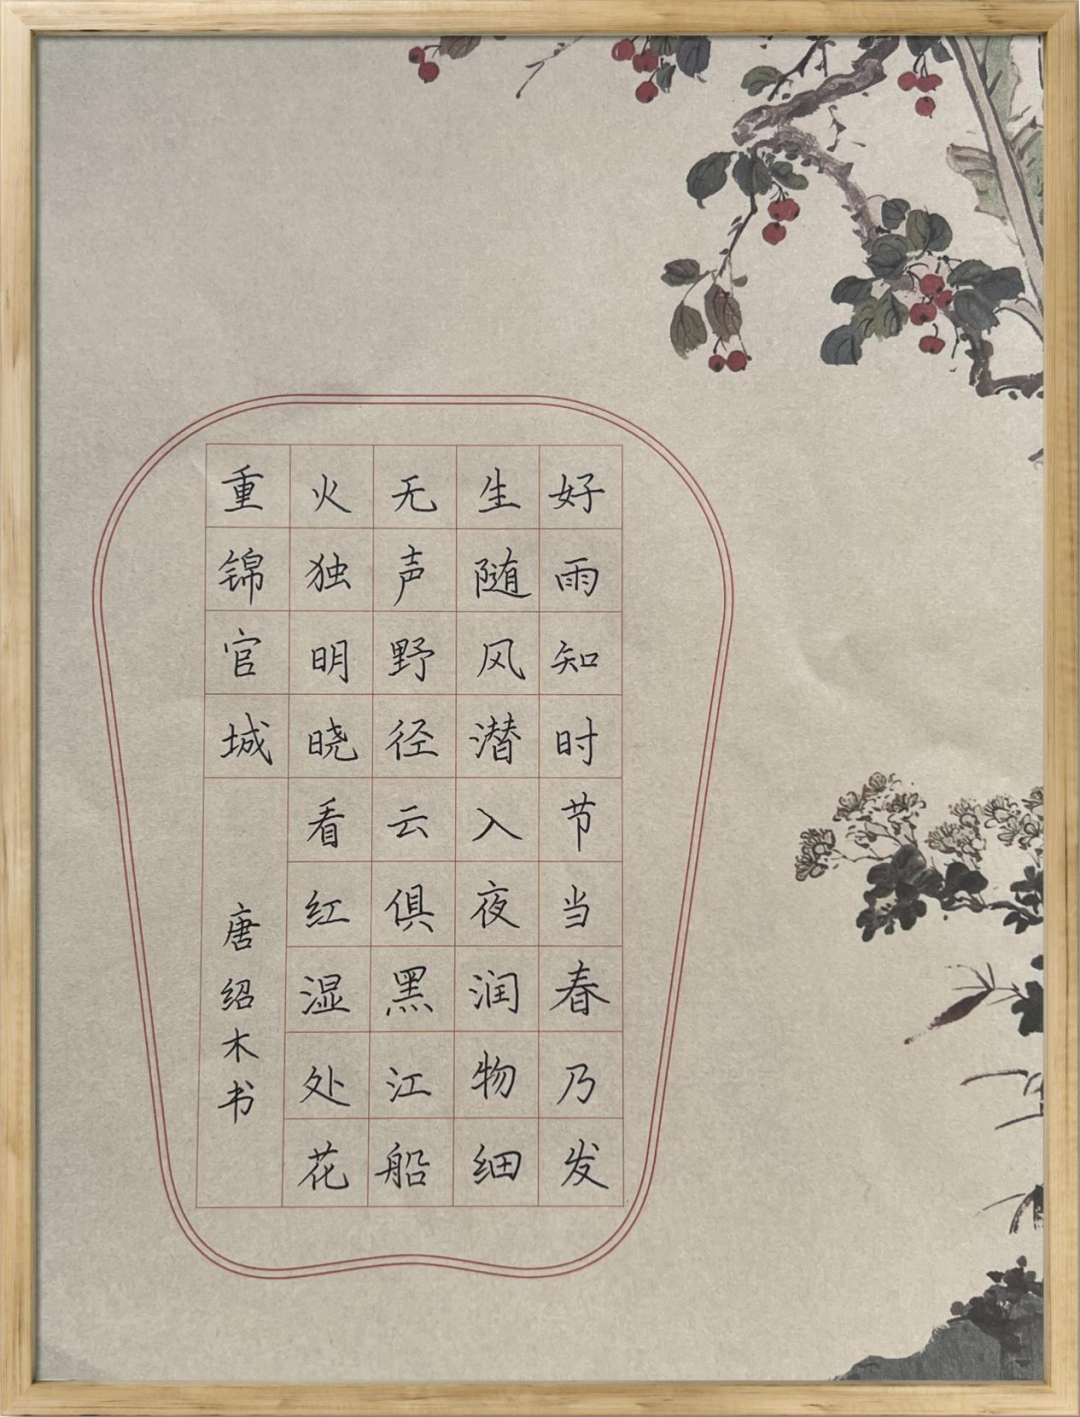 好雨知时节当春乃发
生随风潜入夜润物细
无声野径云俱黑江船
火独明晓看红湿处花
重锦官城
唐绍木书